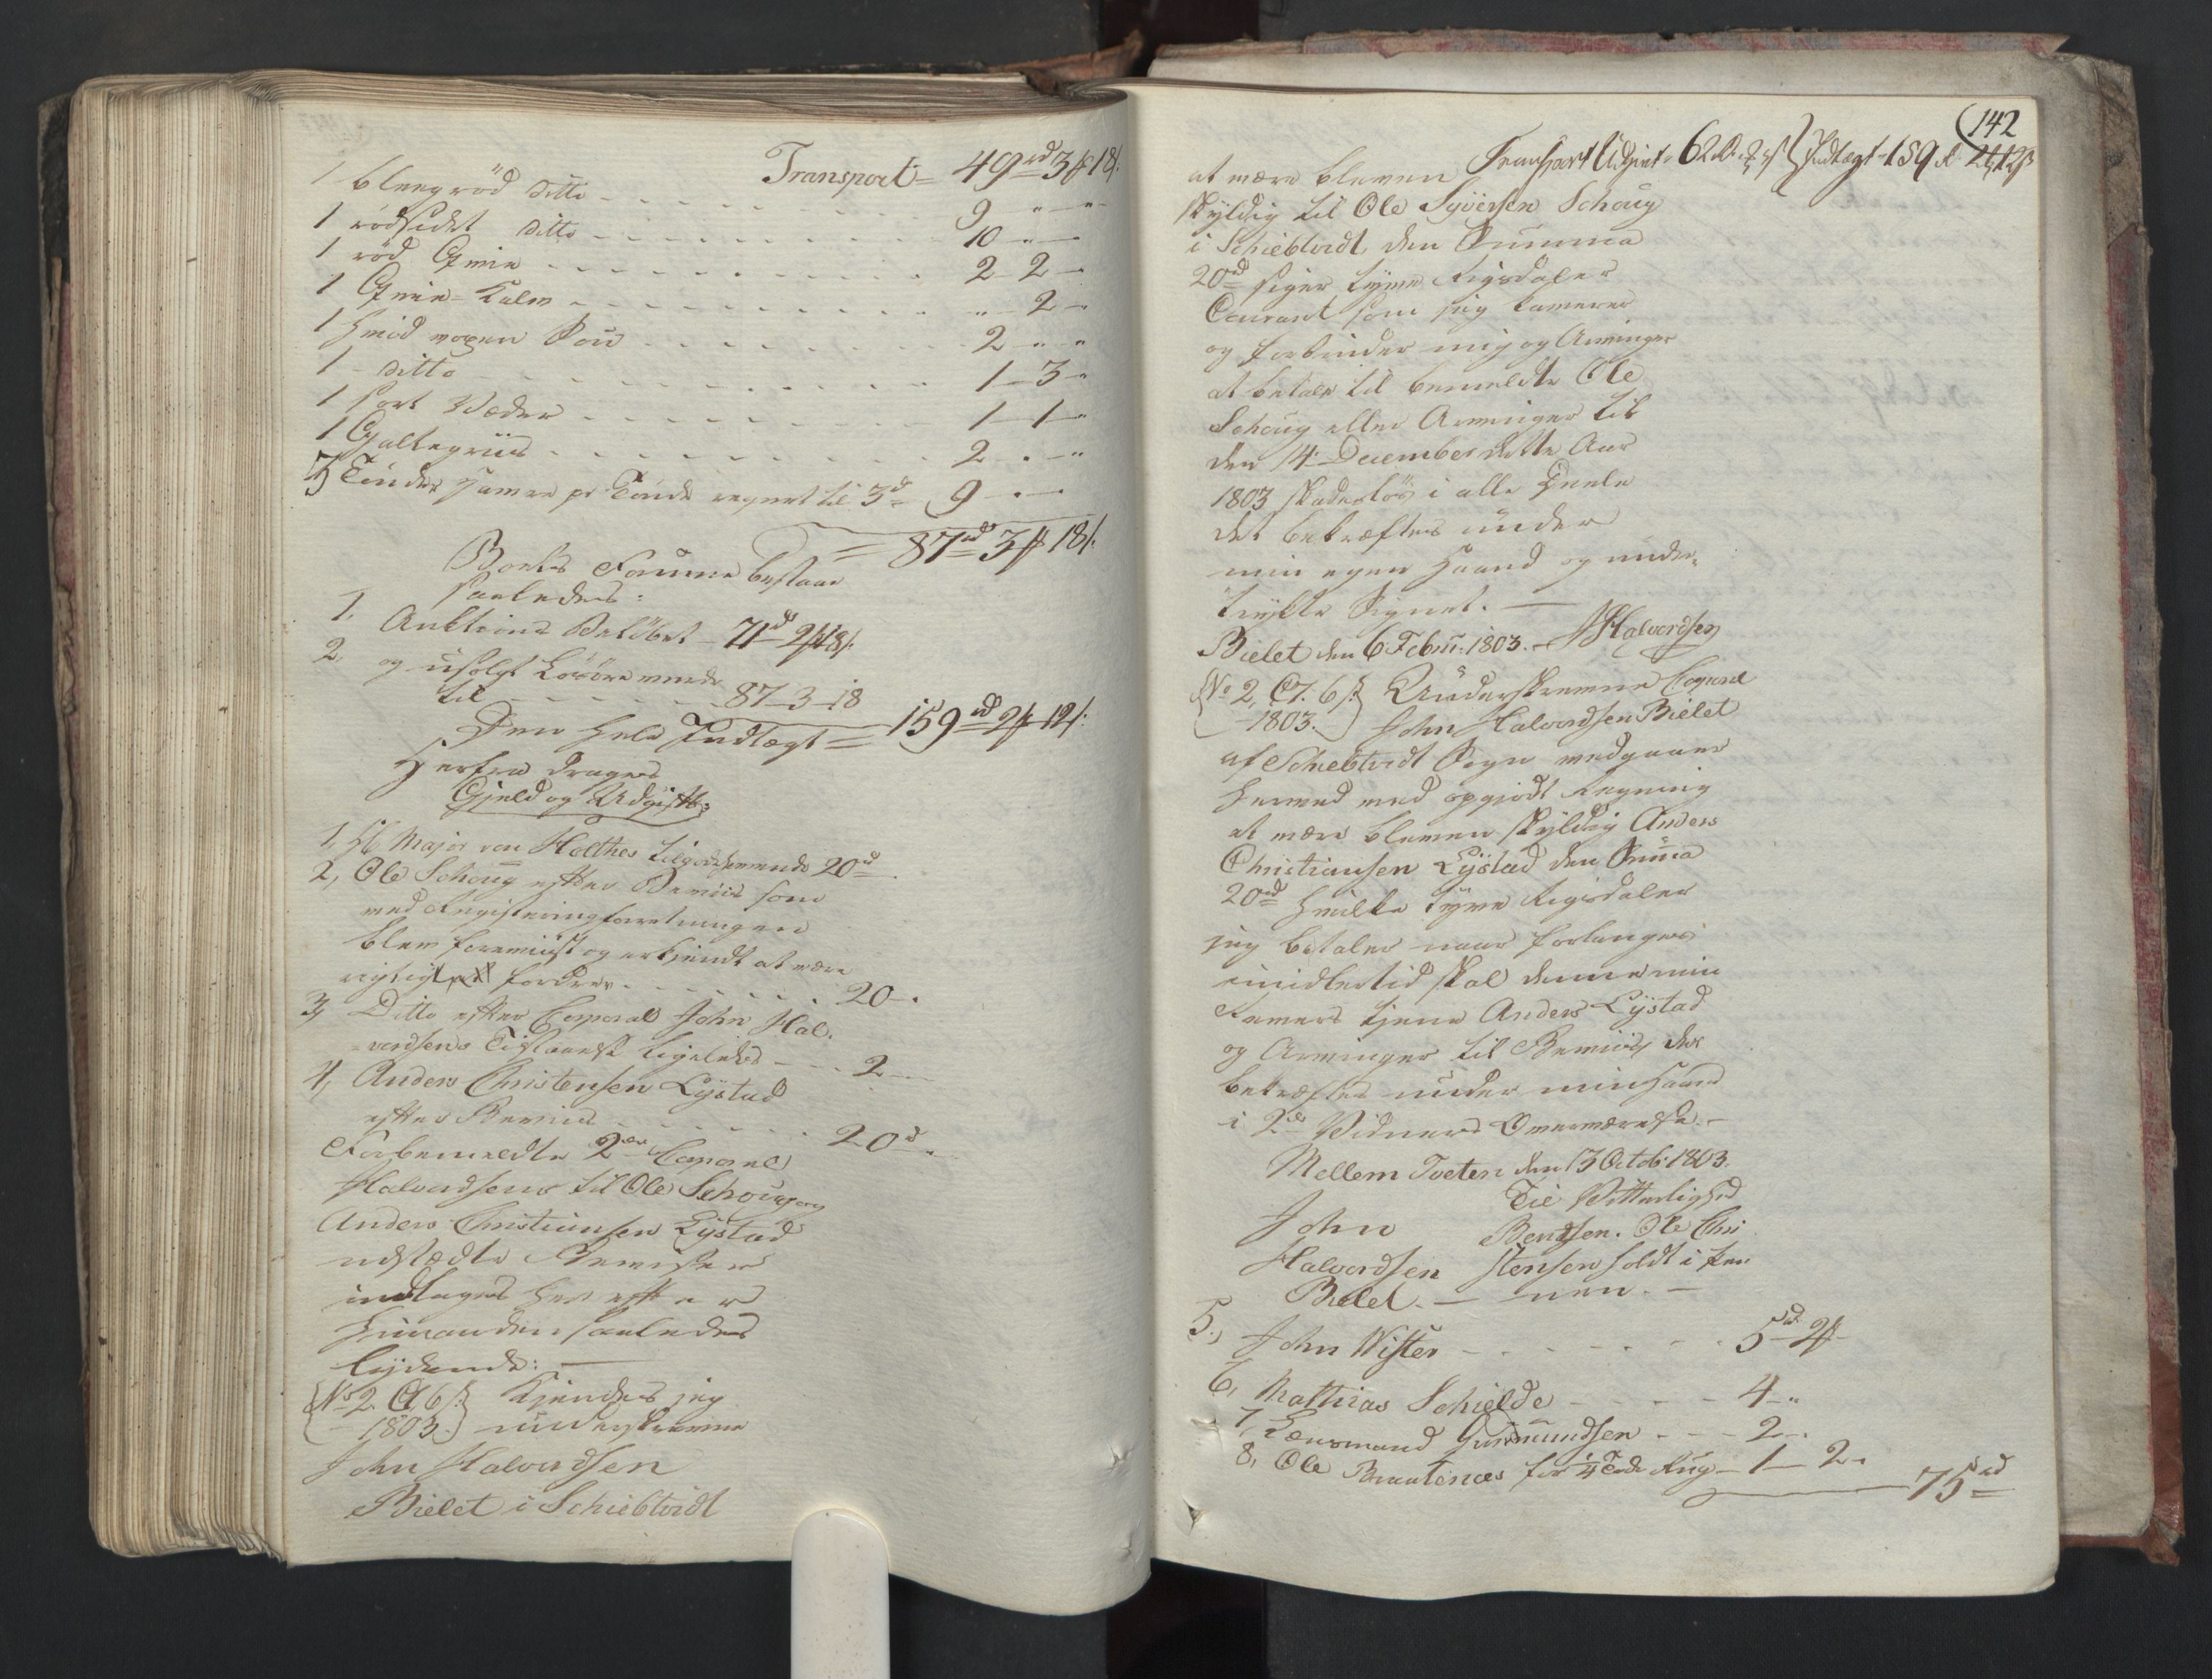 Transport = 49 rd 3 ₰ 18 s:
1 bleegrød ditto - - - 9 " - "
1 rødsidet ditto - - - 10 - " -
1 rød Qvie - - - 2 - 2 -
1 Qvie-Kalv - - - " 2 -
1 hvid voxen Sou - - - 2 - " - "
1 - ditto - - - 1 - 3 - "
1 sort Væder - - - 1 - 1 - "
1 Galtegriis - - - 2 . - "
3 Tønder havre pr Tønde regnet til 3 rd - 9 - . -
= 87 rd 3 ₰ 18 s:
Boets Formue bestaar
saaledes:
1. Auktions Beløbet - 71 rd 2 ₰ 18 s:
2. og usolgt Løsøre
til - - - 87 - 3 - 18
Den hele Indtægt = 159 rd 2 ₰ 12 s:
Herfra drages
Gjeld og Udgift:
1, Hr Major von Holthes tilgodekommende 20 rd
2, Ole Schoug efter Beviis som
ved Registeringsforretningen
blev foreviist og erkjendt at være
rigtig fordret - - - 20 - .
3, Ditto efter Corporal John Hal-
vordsens Tilstaaelse ligeledes - - - 2 -
4, Anders Christensen Lystad
efter Beviis - - - 20 rd
Forbemeldte 2de Corporal
Halvordsens til Ole Schoug og
Anders Christiansen Lystad
udstædte Beviser
indtages her efter
hinanden saaledes
lydende: -
No 2. Cl. 6 s: Kjendes jeg
- 1803. underskrevne
John Halvordsen
Bielet i Schiebtvidt
142
Transport Udgivt = 62 rd Indtægt - 159 rd 2 ₰ 12 s
at være bleven
skyldig til Ole Syversen Schoug
i Schiebtvidt den Summa
20 rd siger tyve Rigsdaler
Courant som jeg
og forbinder mig og Arvinger
at betale til bemeldte Ole
Schoug eller Arvinger til
den 14 December dette Aar
1803 skadesløs i alle Deele
det bekræftes under
min egen Haand og under-
trykte Signet. -
Bielet den 6 Febru: 1803. - JHalvordsen
No 2, Cl. 6 s: Underskrevne Coporal
- 1803. John Halvordsen Bielet
af Schiebtvedt Sogn vedgaaer
herved ved opgjort Regning
at være bleven skyldig Anders
Christiansen Lystad den Sum̅a
20 rd hvilke tyve Rigsdaler
jeg betaler naar forlanges
imidlertid skal denne min
Revers tjene Anders Lystad
og Arvinger til Beviis, det
bekræftes under min Haand
i 2de Vidners Overværelse. -
Mellem Tveten den 13 Octob: 1803.
Til Vitterlighed
John Bentsen. Ole Chri
Halvordsen stensen holdt i Pen
Bielet. - nen. -
5., John Wister - - - 5 rd 2 ₰
6, Mathias Schielde - - - 4 - "
7, Lensmand Gunmundsen - - - 2 - .
8, Ole Braatenes for 1/4 Tønde Rug - 1 - 2 .
75 rd